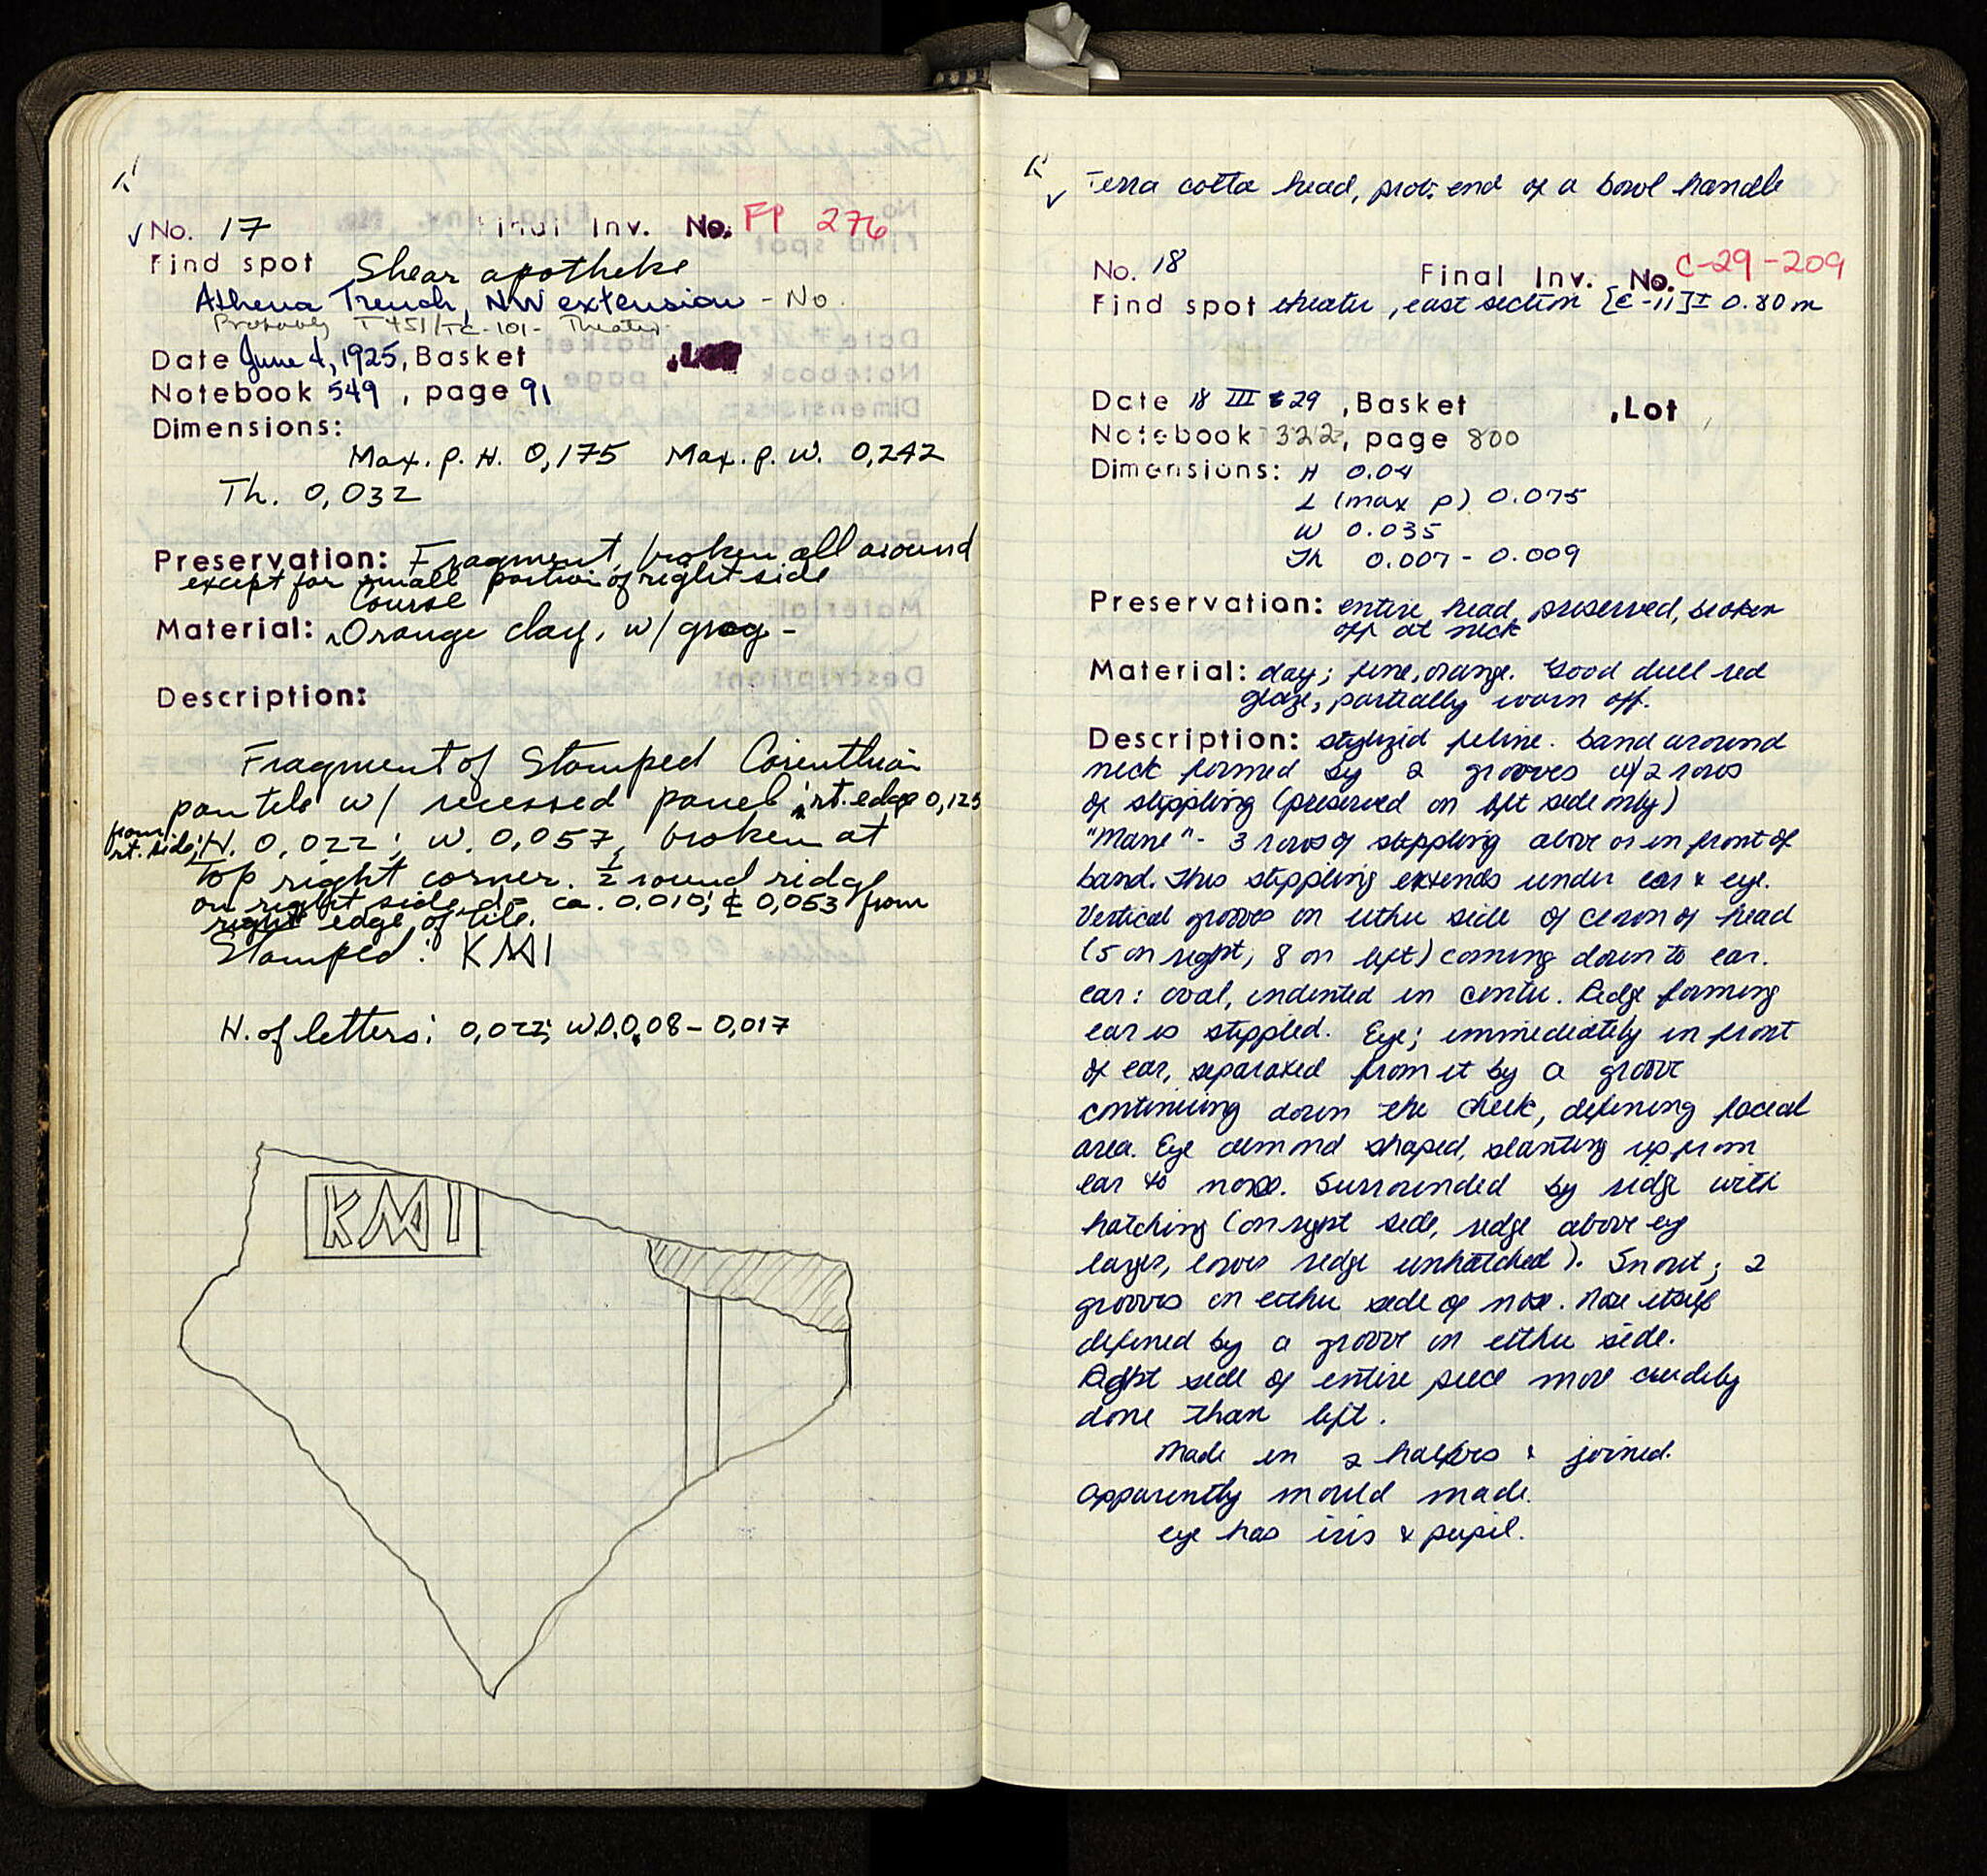 ✓ No. 17 Final Inv. No. FP 276
Find spot Shear apotheke
Athena Trench, NW extension - No.
Probably T 451/TC-101- Theater
Date June 4, 1925, Basket , Lot
Notebook 549, page 91
Dimensions:
Max. p. H. 0,175 Max. p. W. 0,242
Th. 0,032
Preservation: Fragment, broken all around
except for small portion of right side
Course
Material: Orange clay, w/ grog -
Description:
Fragment of Stamped Corinthian
pan tile w/ recessed panel; rt. edge 0,125
from rt. side; H. 0,022; W. 0,057, broken at
top right corner. ½ round ridge
on right side, d = ca. 0.010; ℄ 0,053 from
right edge of tile.
Stamped: KMI
H. of letters: 0,022; W. 0.008-0,017
KMI
✓ Terra cotta head, prob. end of a bowl handle
No. 18 Final Inv. No. C-29-209
Find spot theater, east section [E-11] ± 0.80 m
Date 18 III 29, Basket , Lot
Notebook 322, page 800
Dimensions: H 0.04
L (max p) 0.075
W 0.035
Th 0.007 - 0.009
Preservation: entire head preserved, broken
off at neck
Material: clay; fine, orange. Good dull red
glaze, partially worn off.
Description: stylizid feline. band around
neck formed by 2 grooves w/ 2 rows
of stippling (preserved on left side only)
"Mane" - 3 rows of stippling above or in front of
band. This stippling extends under ear & eye.
Vertical grooves on either side of crown of head
(5 on right, 8 on left) coming down to ear.
ear: oval, indented in center. Ridge forming
ear is stippled. Eye; immediately in front
of ear, separated from it by a groove
continuing down the cheek, defining facial
area. Eye almond shaped, slanting up from
ear to nose. Surrounded by ridge with
hatching (on right side, ridge above eye
larger, lower ridge unhatched). Snout; 2
grooves on either side of nose. Nose itself
defined by a groove on either side.
Right side of entire piece more crudely
done than left.
Made in 2 halves & joined.
Apparently mould made.
eye has iris & pupil.